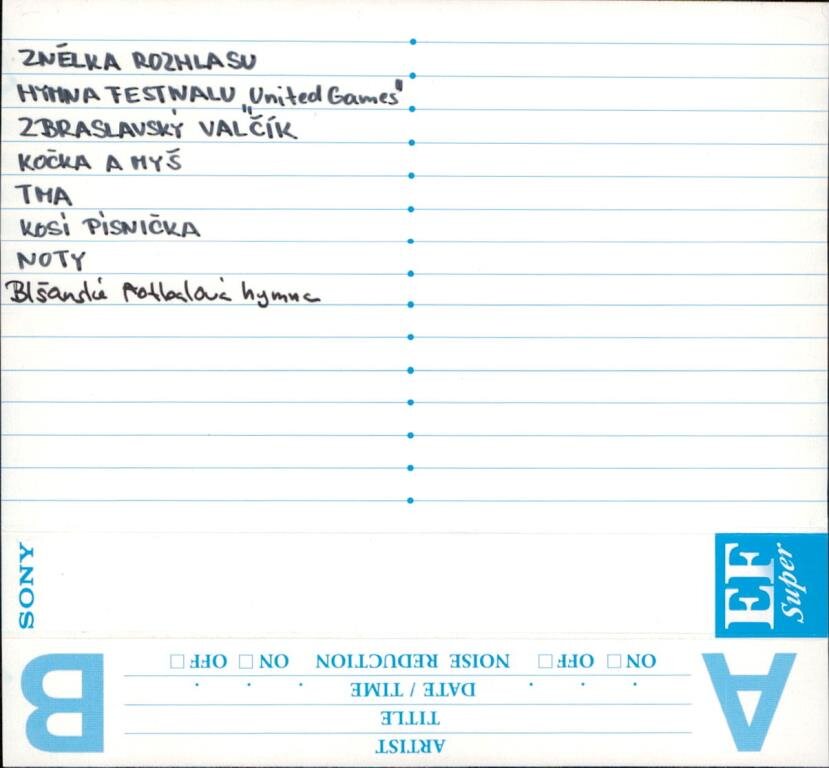 ZNĚLKA ROZHLASU
HYMNA FESTIVALU "United Games"
ZBRASLAVSKÝ VALČÍK
KOČKA A MYŠ
TMA
KOSÍ PÍSNIČKA
NOTY
Blšanská fotbalová hymna
SONY
EF Super
A B
ON □ OFF □ NOISE REDUCTION ON □ OFF □
DATE / TIME
TITLE
ARTIST